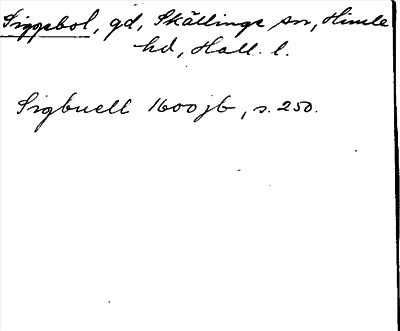 Siggebol, gd, Skällinge sn, Himle
hd, Hall. l.
Sigbuell 1600 jb, s. 250.